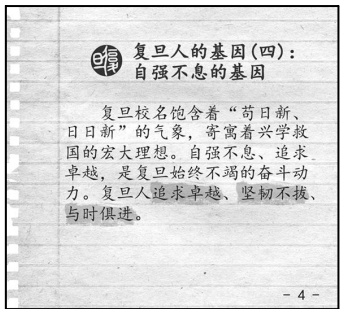 复旦
复旦人的基因(四):
自强不息的基因
复旦校名饱含着“苟日新、
日日新”的气象，寄寓着兴学救
国的宏大理想。自强不息、追求
卓越，是复旦始终不竭的奋斗动
力。复旦人追求卓越、坚韧不拔、
与时俱进。
- 4 -